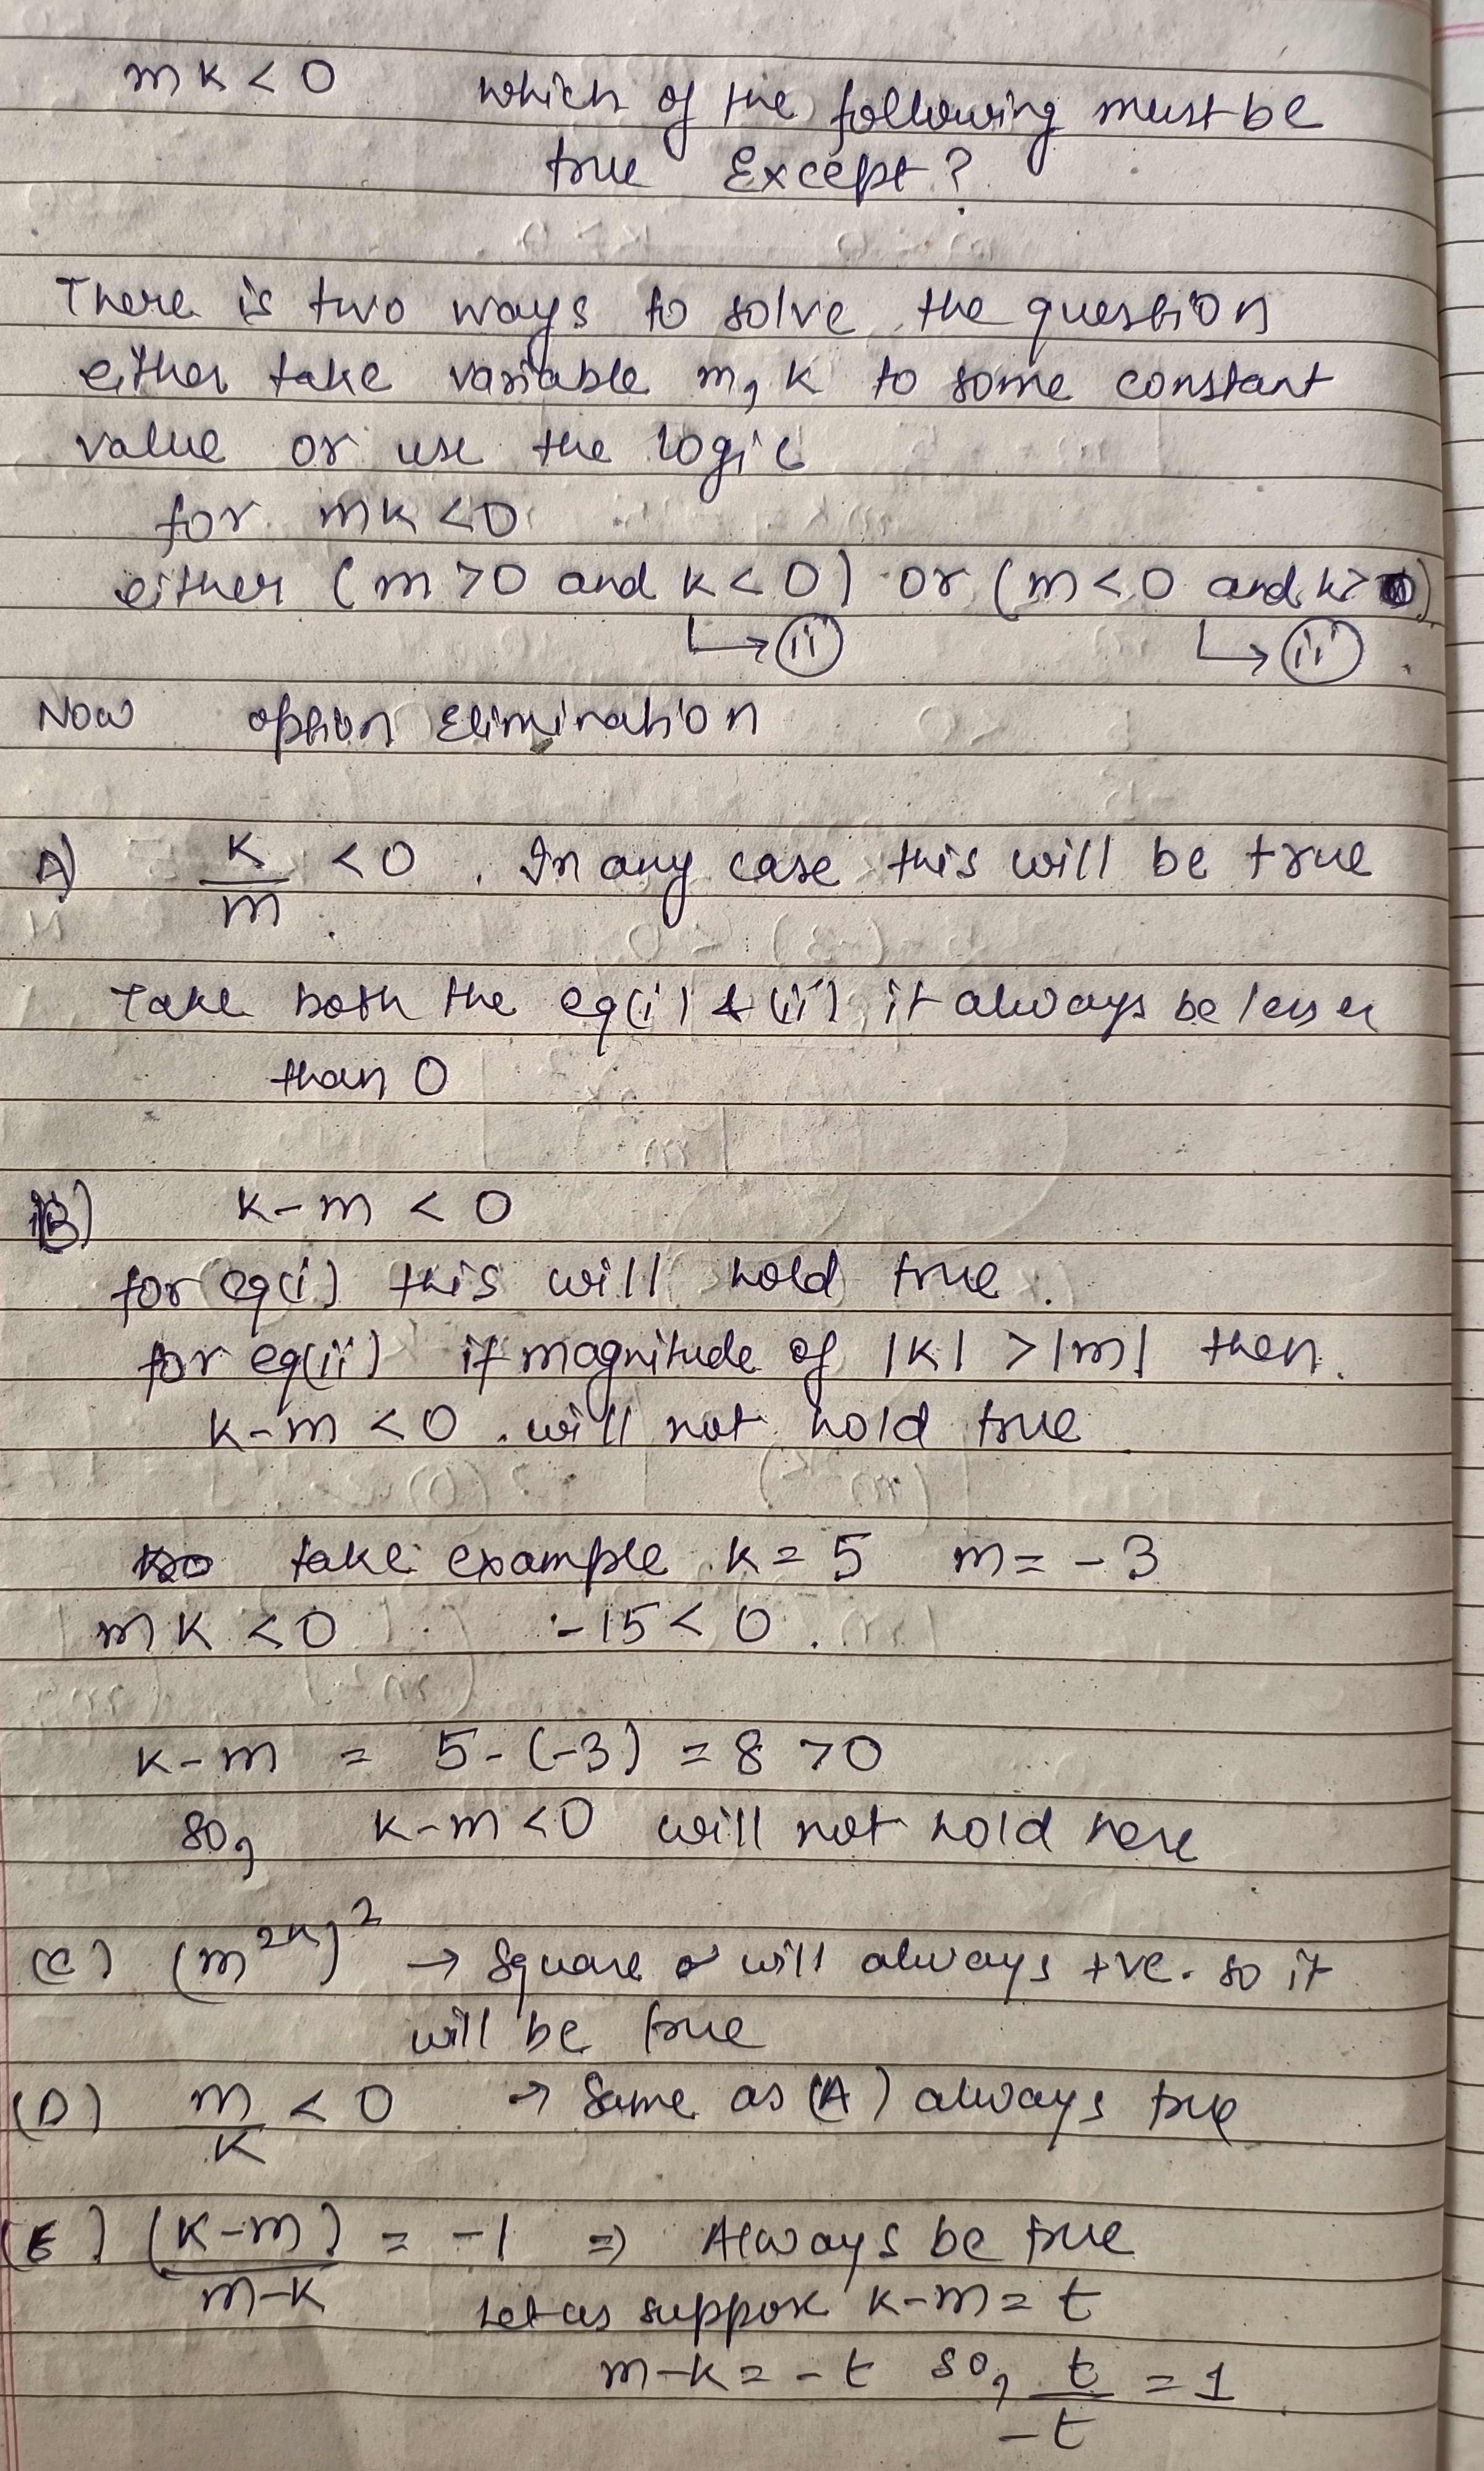 mk < 0 which of the following must be
true Except?
There is two ways to solve the question
either take variable m, k to some constant
value or use the logic
for mk < 0
either (m > 0 and k < 0) or (m < 0 and k > 0)
↳ (ii) ↳ (ii)
Now option Elimination
A) k/m < 0 . In any case this will be true
Take both the eq(i) & (ii) it always be lesser
than 0
(B) k - m < 0
for eq(i) this will hold true.
for eq(ii) if magnitude of |k| > |m| then.
k - m < 0 . will not hold true
take example k = 5 m = -3
mk < 0 -15 < 0 .
k - m = 5 - (-3) = 8 > 0
so, k - m < 0 will not hold here
(C) (m^2k)^2 → Square will always +ve. so it
will be true
(D) m/k < 0 → Same as (A) always true
(E) (k-m)/m-k = -1 ⇒ Always be true
Let us suppose k - m = t
m - k = -t so, t/-t = 1